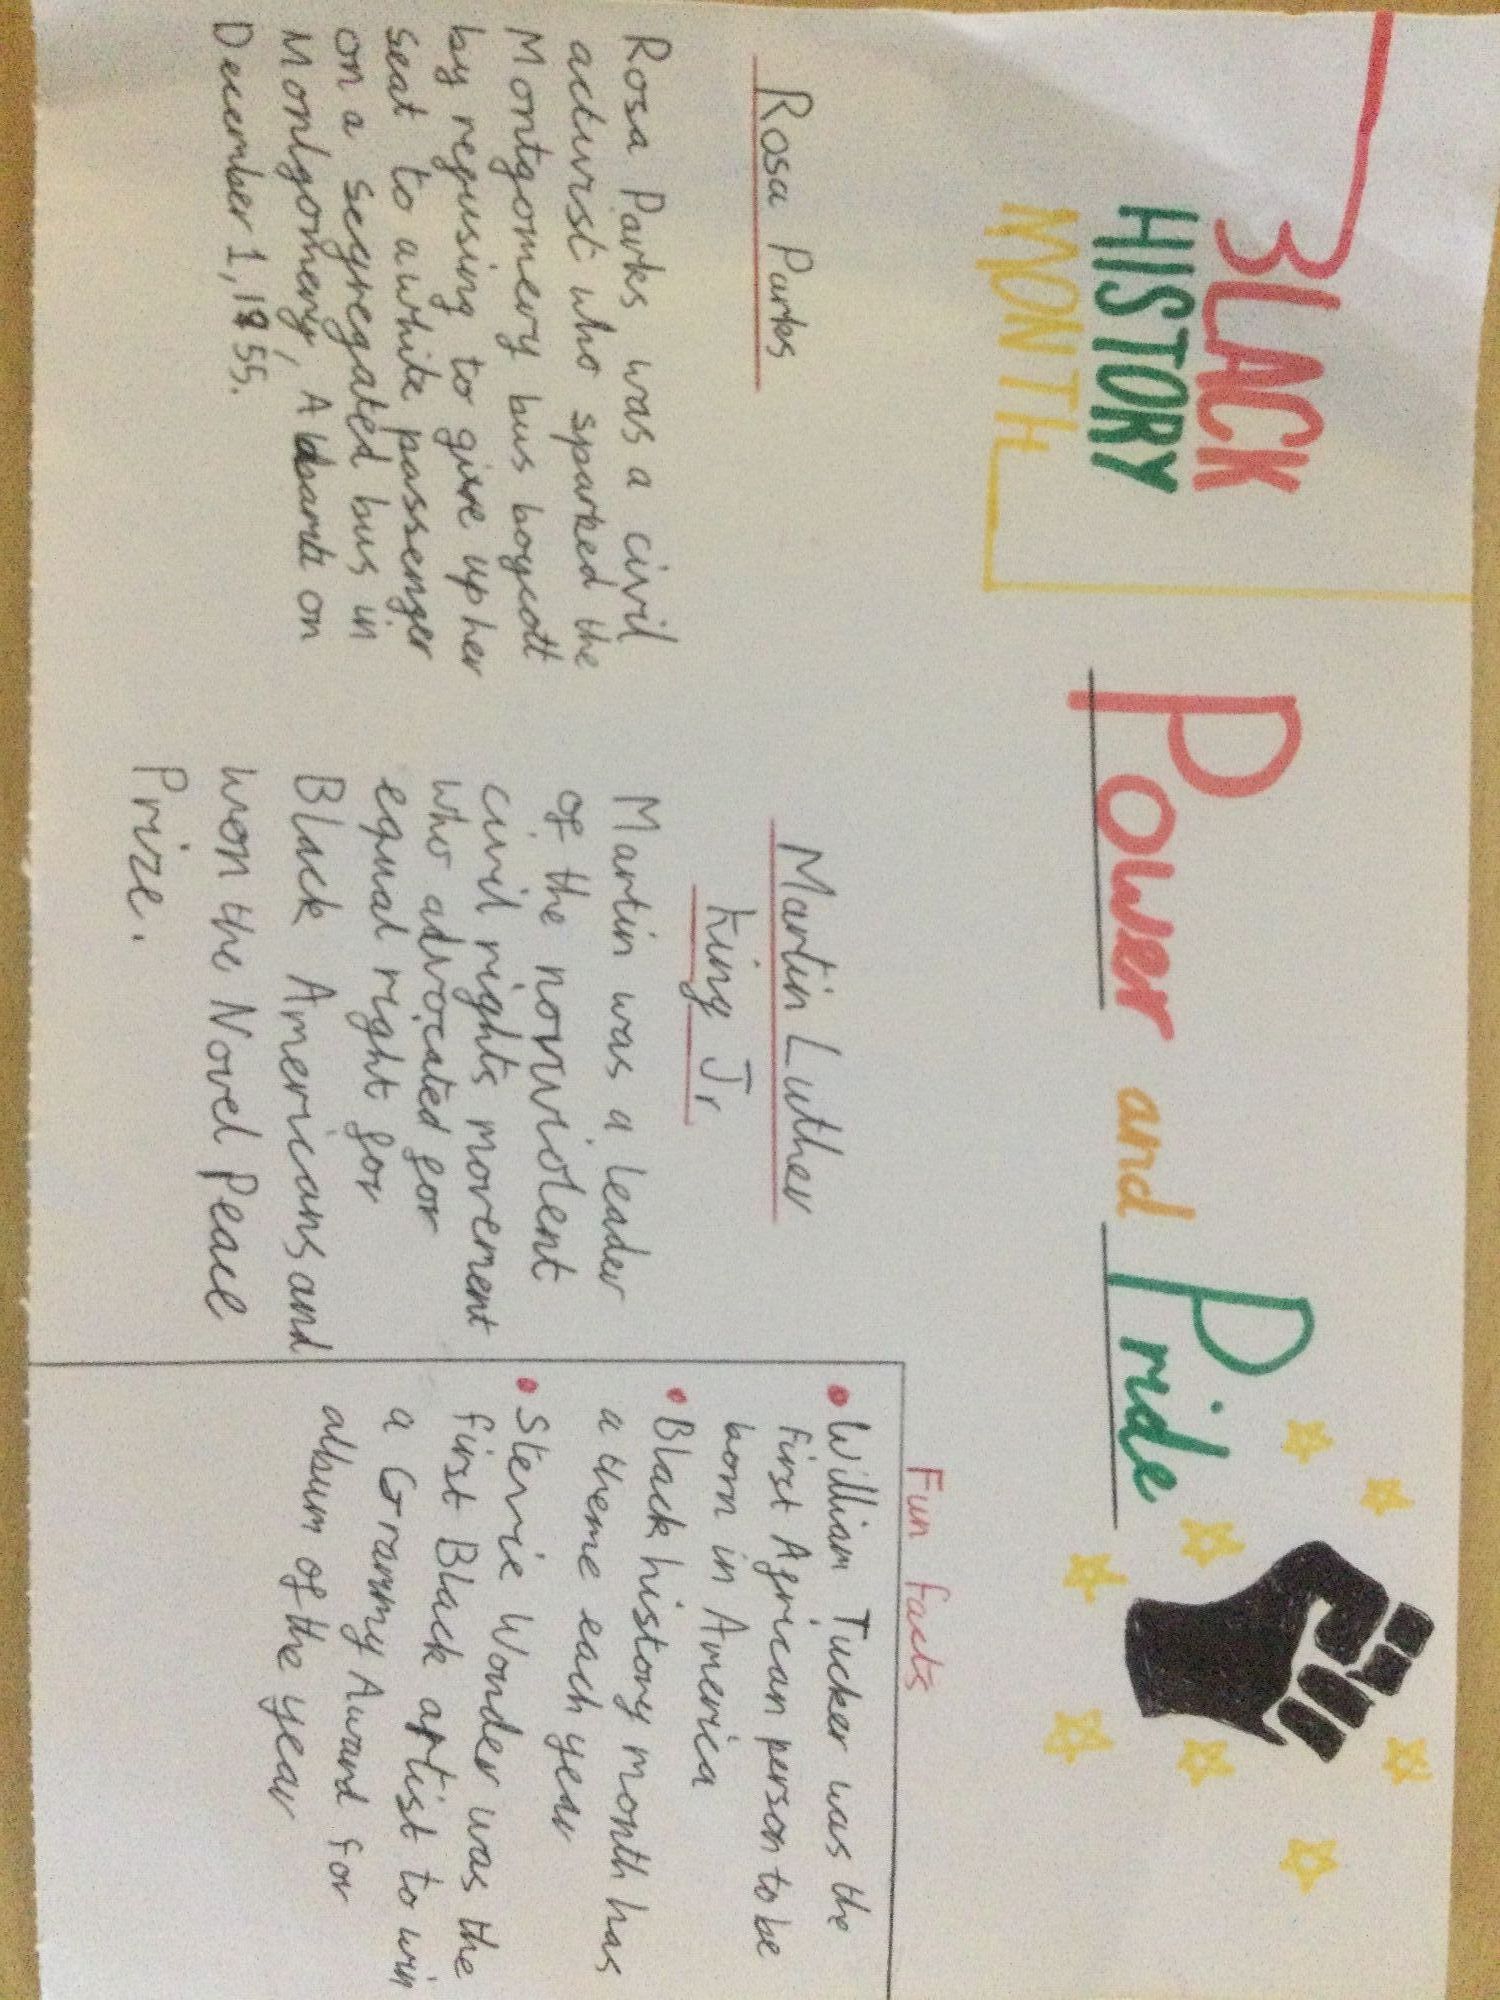 BLACK
HISTORY
MONTH
Power and Pride
Rosa Parks
Rosa Parks was a civil
activist who sparked the
Montgomery bus boycott
by refusing to give up her
seat to a white passenger
on a segregated bus in
Montgomery, Alabama on
December 1, 1955.
Martin Luther
King Jr
Martin was a leader
of the nonviolent
civil rights movement
who advocated for
equal right for
Black Americans and
won the Novel Peace
Prize.
Fun facts
• William Tucker was the
first African person to be
born in America
• Black history month has
a theme each year
• Stevie Wonder was the
first Black artist to win
a Grammy Award for
album of the year